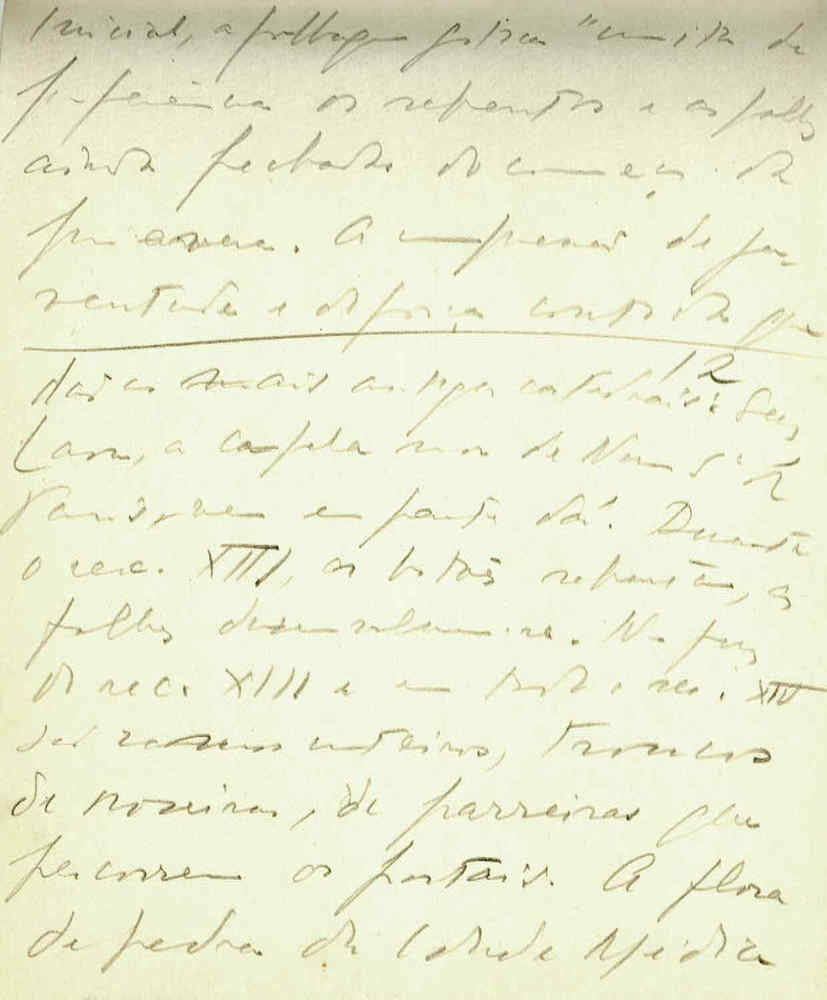 inicial, a folhagem gótica "imita de
preferência os rebentos e as folhas
ainda fechadas do começo da
primavera. A impressão de ju-
ventude e de força contida que
dão as mais antigas catedrais: Sens,
Laon, a capela mor de Notre D. de
Paris, vem em parte daí. Durante
o sec. XIII, os botões rebentam, as
folhas desenvolvem-se. No fim
do sec. XIII e em todo o sec. XIV
são ramos inteiros, troncos
de roseiras, de parreiras que
percorrem os portais. A flora
de pedra da Idade Média